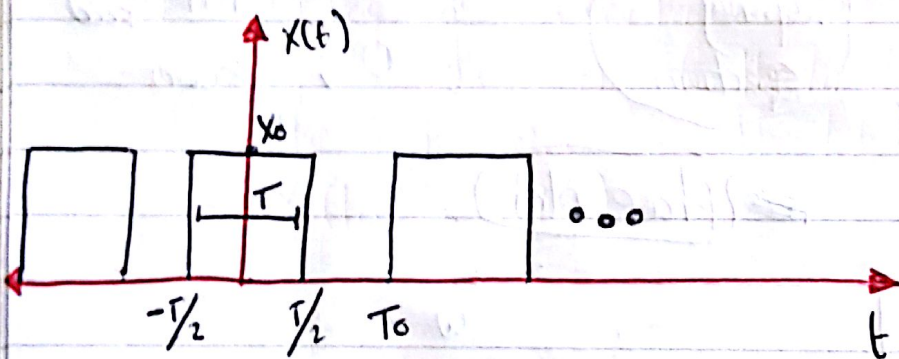 x(t)
X₀
T
-T/2 T/2 T₀ t